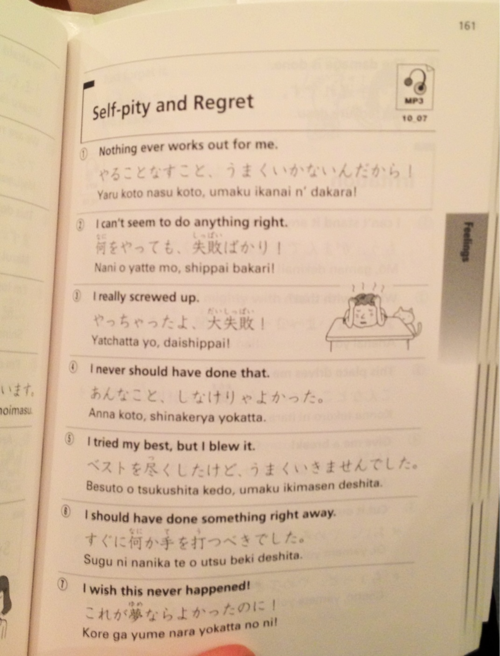 161
Self-pity and Regret
MP3
10_07
① Nothing ever works out for me.
やることなすこと、うまくいかないんだから！
Yaru koto nasu koto, umaku ikanai n' dakara!
② I can't seem to do anything right.
何をやっても、失敗ばかり！
Nani o yatte mo, shippai bakari!
③ I really screwed up.
やっちゃったよ、大失敗！
Yatchatta yo, daishippai!
④ I never should have done that.
あんなこと、しなけりゃよかった。
Anna koto, shinakerya yokatta.
⑤ I tried my best, but I blew it.
ベストを尽くしたけど、うまくいきませんでした。
Besuto o tsukushita kedo, umaku ikimasen deshita.
⑥ I should have done something right away.
すぐに何か手を打つべきでした。
Sugu ni nanika te o utsu beki deshita.
⑦ I wish this never happened!
これが夢ならよかったのに！
Kore ga yume nara yokatta no ni!
Feelings
います。
noimasu.